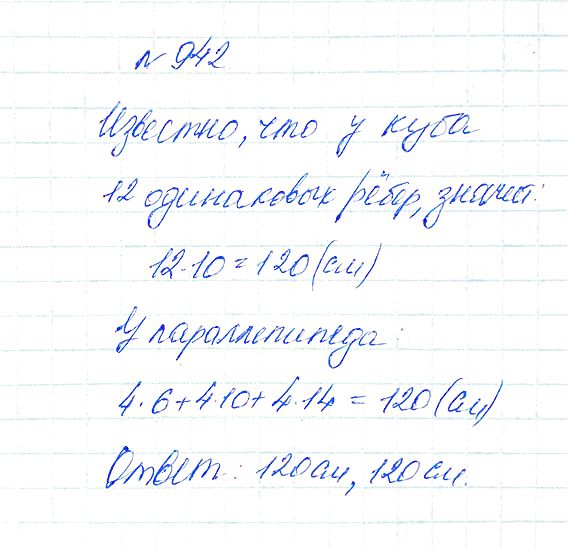 № 942
Известно, что у куба
12 одинаковых рёбер, значит:
12·10=120(см)
У параллепипеда:
4·6+4·10+4·14=120(см)
Ответ: 120см, 120см.